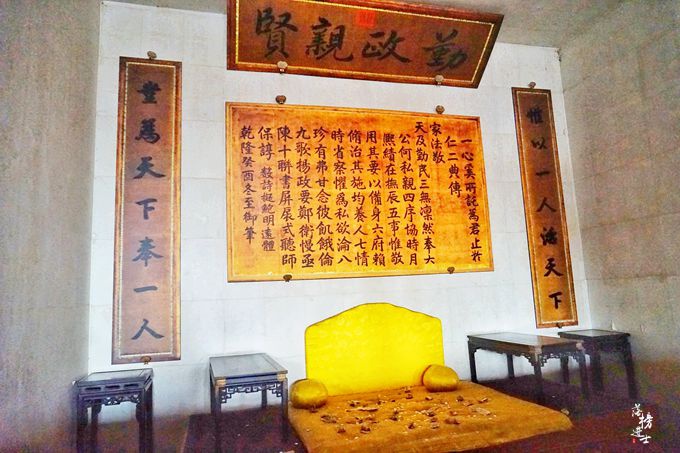 勤政親賢
惟以一人治天下
一心奚所託為君止於
仁二典傳
家法敬
天及勤民三無凛然奉大
公何私親四序協時月
熙績在撫辰五事惟敬
用其要以備身六府賴
脩治其施均養人七情
時省察懼為私欲淪八
珍有弗甘念彼飢餓倫
九歌揚政要鄭衛慢亟
陳十聯書屏扆式聽師
保諄 數詩擬鮑明遠體
乾隆癸酉冬至御筆
豈為天下奉一人
落榜進士